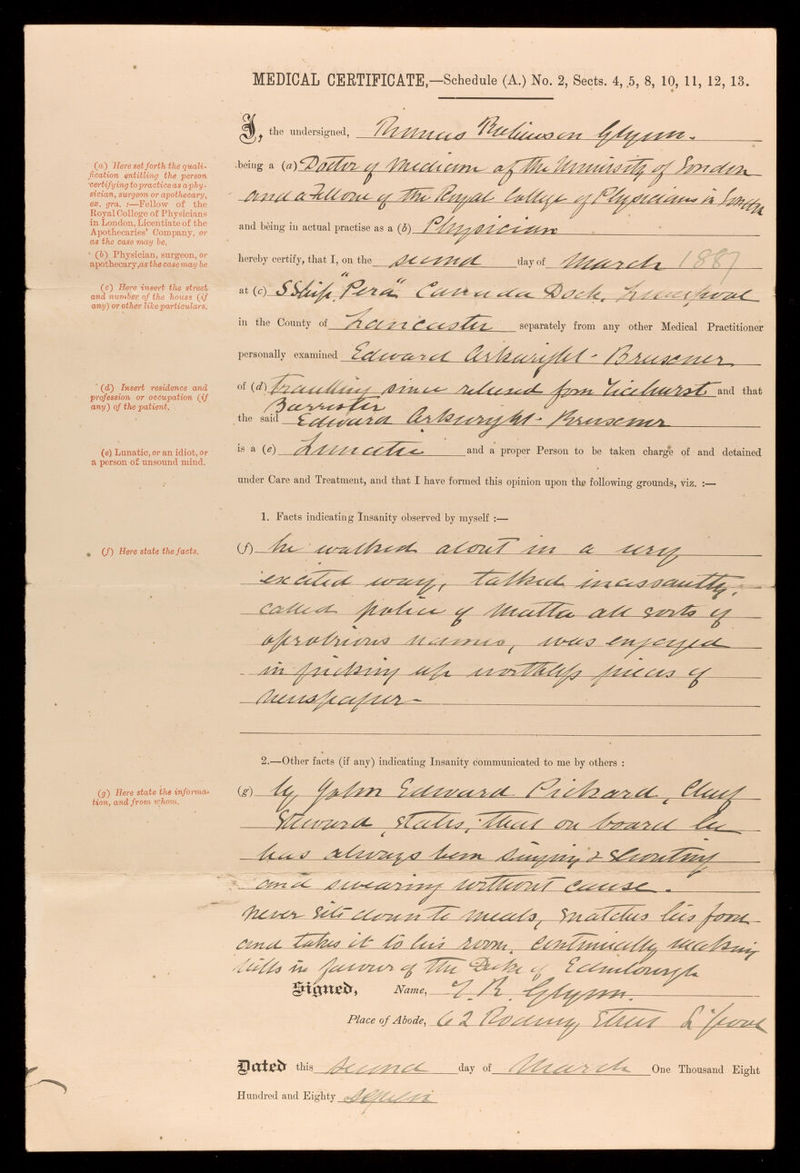 MEDICAL CERTIFICATE,—Schedule (A.) No. 2, Sects. 4, 5, 8, 10, 11, 12, 13.
I, the undersigned, Thomas Robinson Glynn.
(a) Here set forth the quali-
fication entitling the person
certifying to practice as a phy-
sician, surgeon or apothecary,
ex. gra. :—Fellow of the
Royal College of Physicians
in London, Licentiate of the
Apothecaries' Company, or
as the case may be.
being a (a) Doctor of Medicine of the University of London
and a Fellow of the Royal College of Physicians in London
and being in actual practise as a (b) Physician
(b) Physician, surgeon, or
apothecary, as the case may be
hereby certify, that I, on the second day of March 1887
(c) Here insert the street
and number of the house (if
any) or other like particulars.
at (c) SShip "Pera" Canada Dock, Liverpool
in the County of Lancaster separately from any other Medical Practitioner
personally examined Edward Arkwright-Bruxner
(d) Insert residence and
profession or occupation (if
any) of the patient.
of (d) travelling since released from Ticehurst and that
Barrister
the said Edward Arkwright-Bruxner
(e) Lunatic, or an idiot, or
a person of unsound mind.
is a (e) Lunatic and a proper Person to be taken charge of and detained
under Care and Treatment, and that I have formed this opinion upon the following grounds, viz. :—
1. Facts indicating Insanity observed by myself :—
(f) Here state the facts.
(f) he walked about in a very
excited way, talked incessantly,
called police of Malta all sorts of
oprobrious names, was engaged
in picking up worthless pieces of
newspaper—
2.—Other facts (if any) indicating Insanity communicated to me by others :
(g) Here state the informa-
tion, and from whom.
(g) by John Edward Pickard, Chief
Steward, states, that on board he
has always been singing & shouting
and swearing without cause.
never sits down to meals, snatches his food
and takes it to his room. continually making
wills in favour of the Duke of Edinburgh
Signed, Name, T. R. Glynn.
Place of Abode, 62 Rodney Street L'pool
Dated this second day of March One Thousand Eight
Hundred and Eighty seven